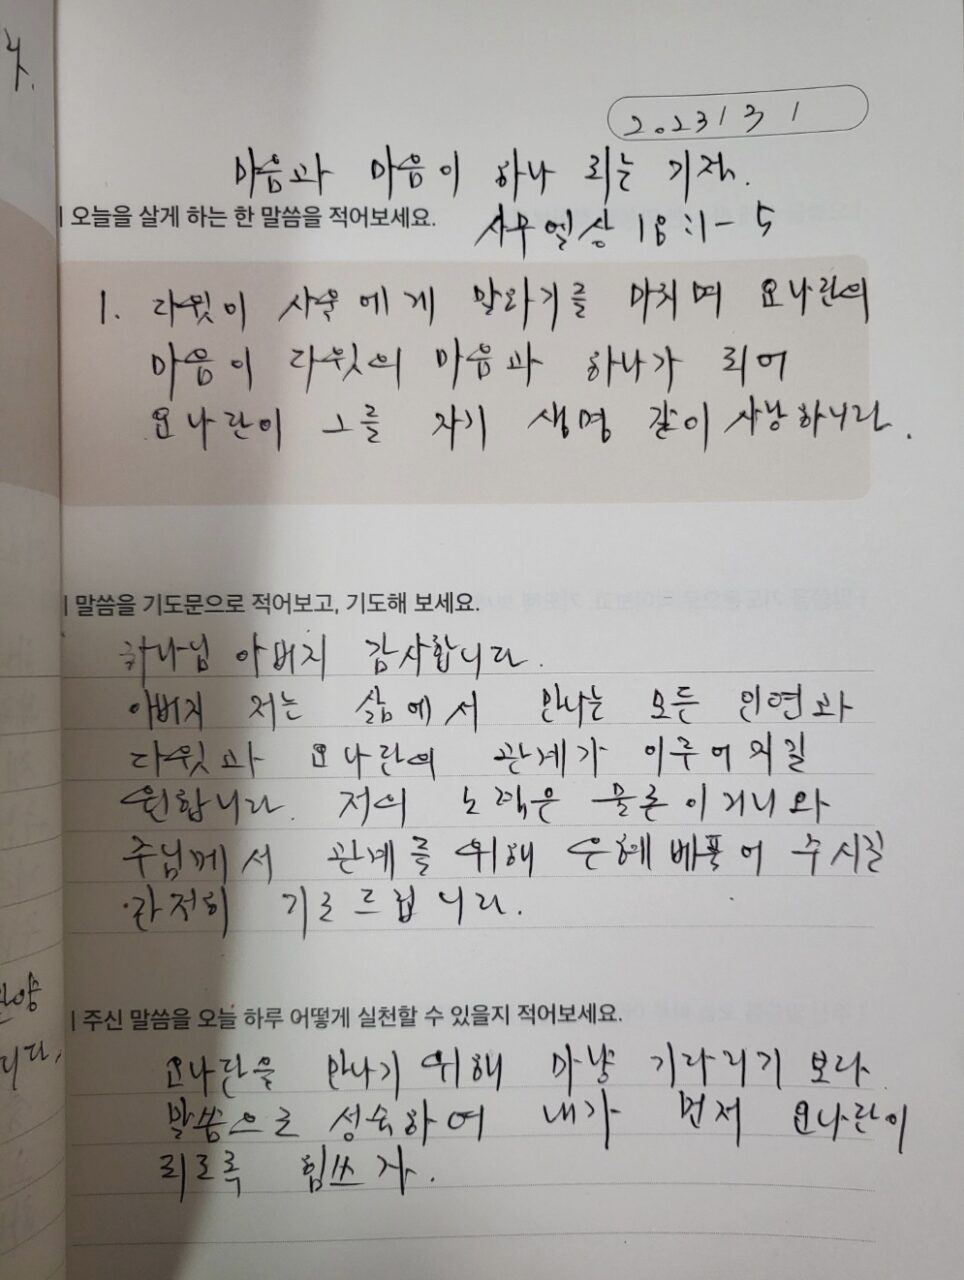 2023 / 3 1
마음과 마음이 하나 되는 기적.
| 오늘을 살게 하는 한 말씀을 적어보세요.
사무엘상 18:1-5
1. 다윗이 사울에게 말하기를 마치며 요나단의
마음이 다윗의 마음과 하나가 되어
요나단이 그를 자기 생명 같이 사랑하니라.
| 말씀을 기도문으로 적어보고, 기도해 보세요.
하나님 아버지 감사합니다.
아버지 저는 삶에서 만나는 모든 인연과
다윗과 요나단의 관계가 이루어지길
원합니다. 저의 노력은 물론이거니와
주님께서 관계를 위해 은혜 베풀어 주시길
간절히 기도드립니다.
| 주신 말씀을 오늘 하루 어떻게 실천할 수 있을지 적어보세요.
요나단을 만나기 위해 마냥 기다리기 보다
말씀으로 성숙하여 내가 먼저 요나단이
되도록 힘쓰자.